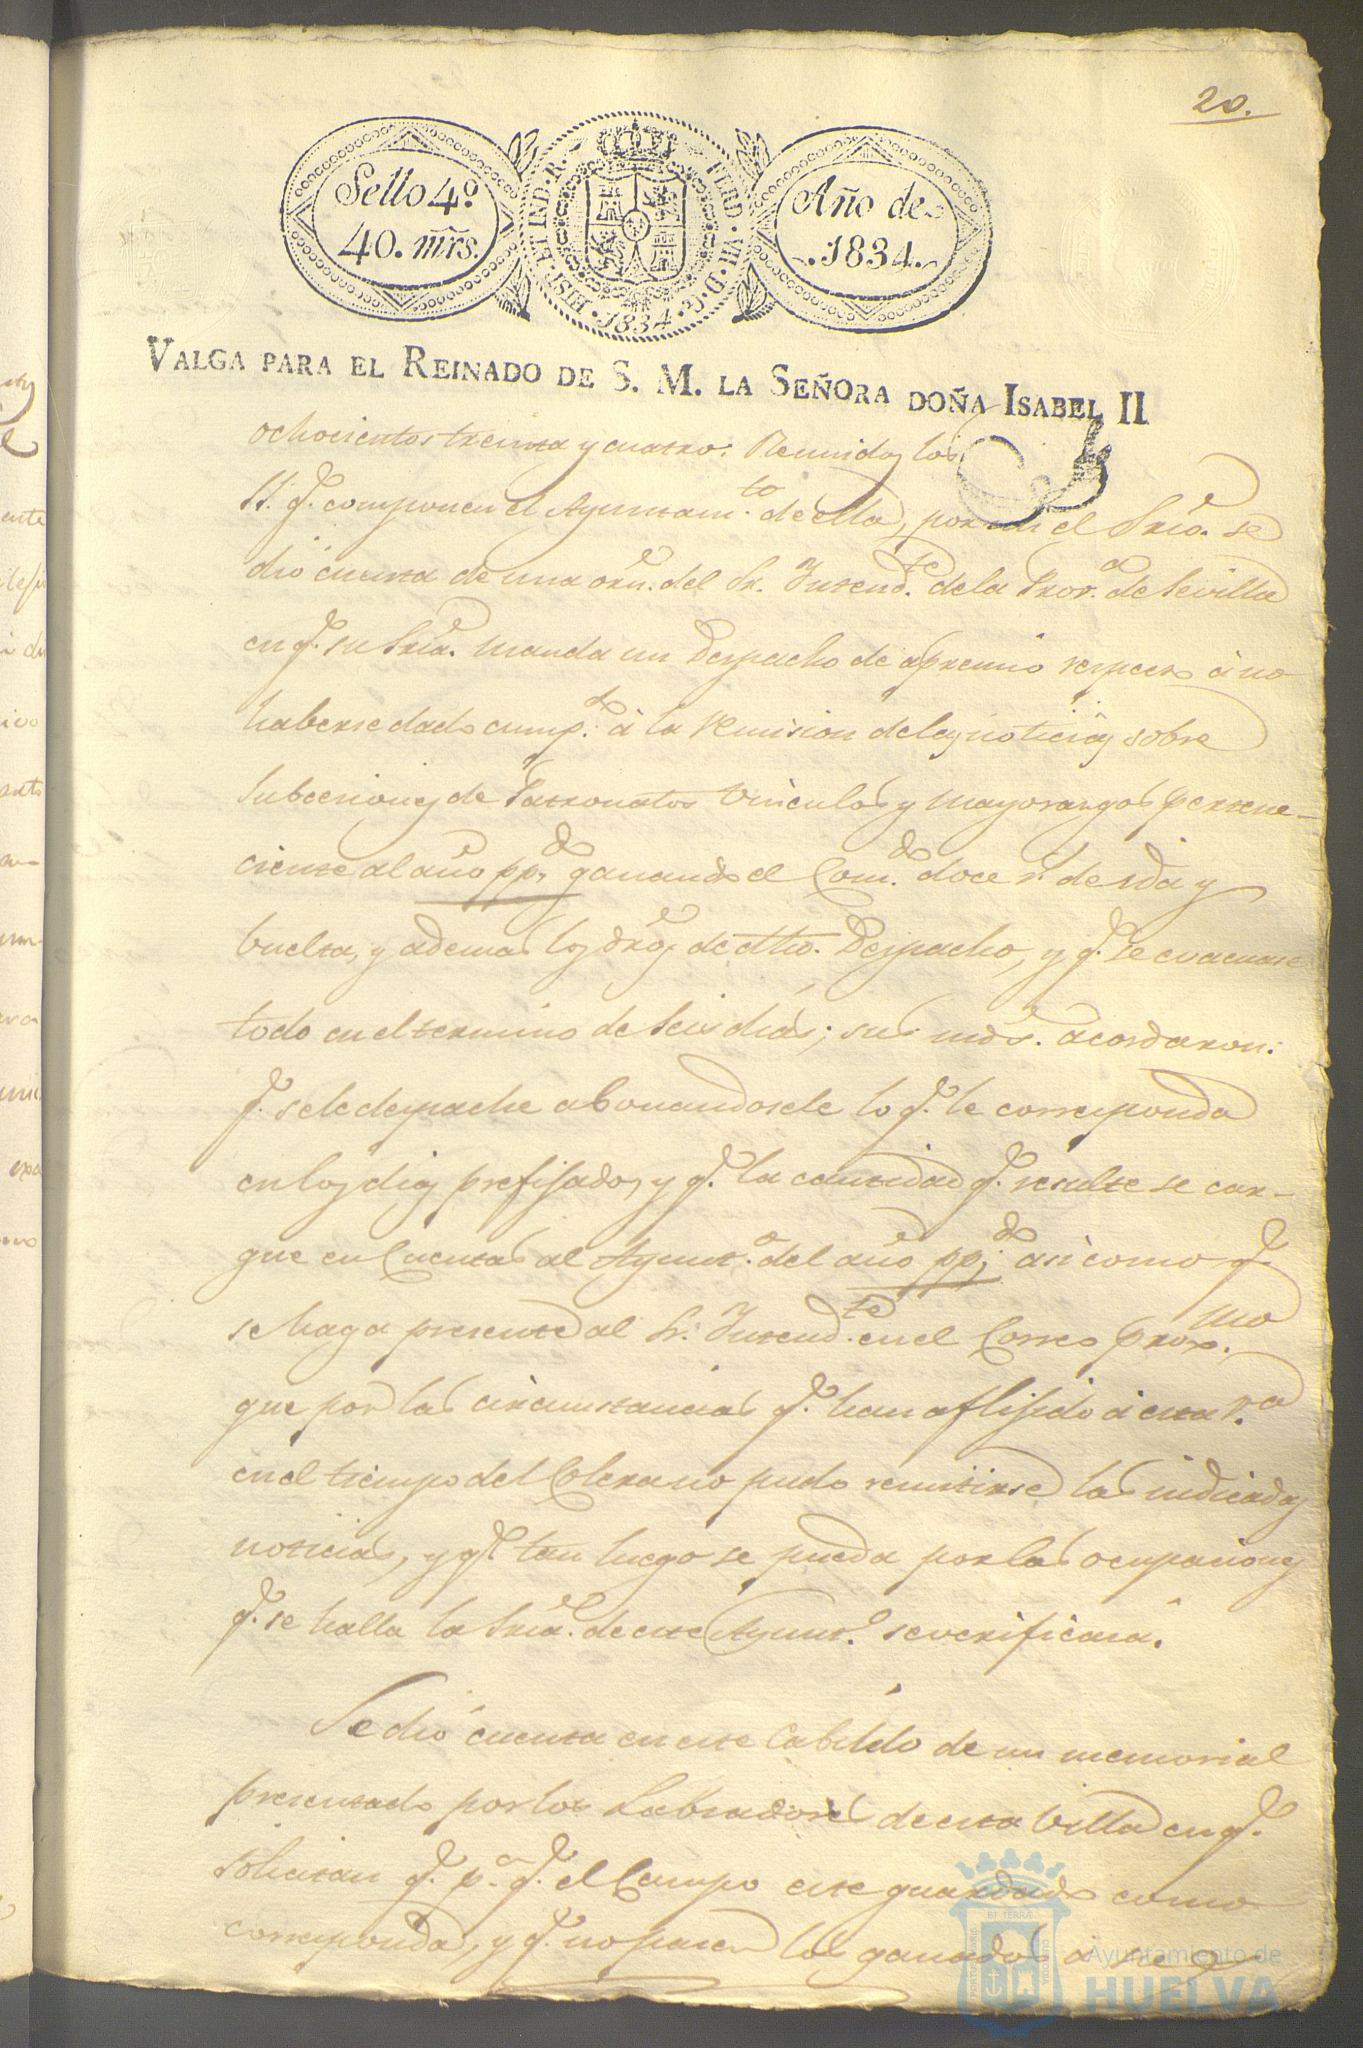 20.
Sello 4º
40. mrs.
HISP. ET IND. R. FERD. VII. D. G. 1834
Año de
1834.
VALGA PARA EL REINADO DE S. M. LA SEÑORA DOÑA ISABEL II
ochocientos treinta y cuatro. Reunidos los
SS. q.e componen el Ayuntam.to de ella, por mi el Srio. se
dió cuenta de una orn. del Sr. Intend.te de la Prov.a de Sevilla
en q.e su Sria. manda un Despacho de apremio respecto á no
haberse dado cump.do á la remision de las noticias sobre
Subceciones de Patronatos Vinculos y Mayorasgos pertene-
ciente al año pp.do ganando el Com.do doce r.s de ida y
buelta, y ademas los dros. de dho. Despacho, y q.e se evacuase
todo en el termino de seis dias; sus mds. acordaron:
q.e se le despache abonandosele lo q.e le corresponda
en los dias prefijados, y q.e la cantidad q.e resulte se car-
gue en Cuentas al Ayunt.o del año pp.do asi como q.e
se haga presente al Sr. Intend.te en el Correo prox.mo
que por las circunstancias q.e han aflijido á esta V.a
en el tiempo del Colera no pudo remitirse las indicadas
noticias, y q.e tan luego se pueda por las ocupaciones
q.e se halla la Sria. de este Ayunt.o se verificará.
Se dió cuenta en este Cabildo de un memorial
presentado por los Labradores de esta Villa en q.e
solicitan q.e p.a q.e el Campo este guardado como
corresponda, y q.e no pasen los ganados á
Ayuntamiento de
HUELVA